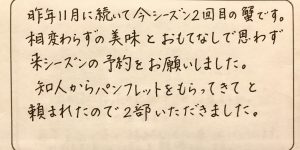 昨年11月に続いて今シーズン2回目の蟹です。
相変わらずの美味とおもてなしで思わず
来シーズンの予約をお願いしました。
知人からパンフレットをもらってきてと
頼まれたので2部いただきました。